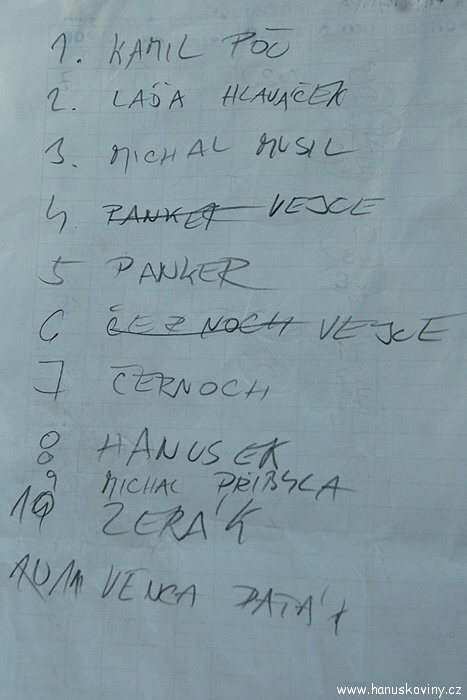 1. KAMIL PÖŮ
2. LAĎA HLAVÁČEK
3. MICHAL MUSIL
4 PANKER VEJCE
5 PANKER
6 ČERNOCH VEJCE
7 ČERNOCH
8 HANUSEK
9 MICHAL PŘIBYLA
10 ZERÁK
11 VENCA
www.hanuskoviny.cz